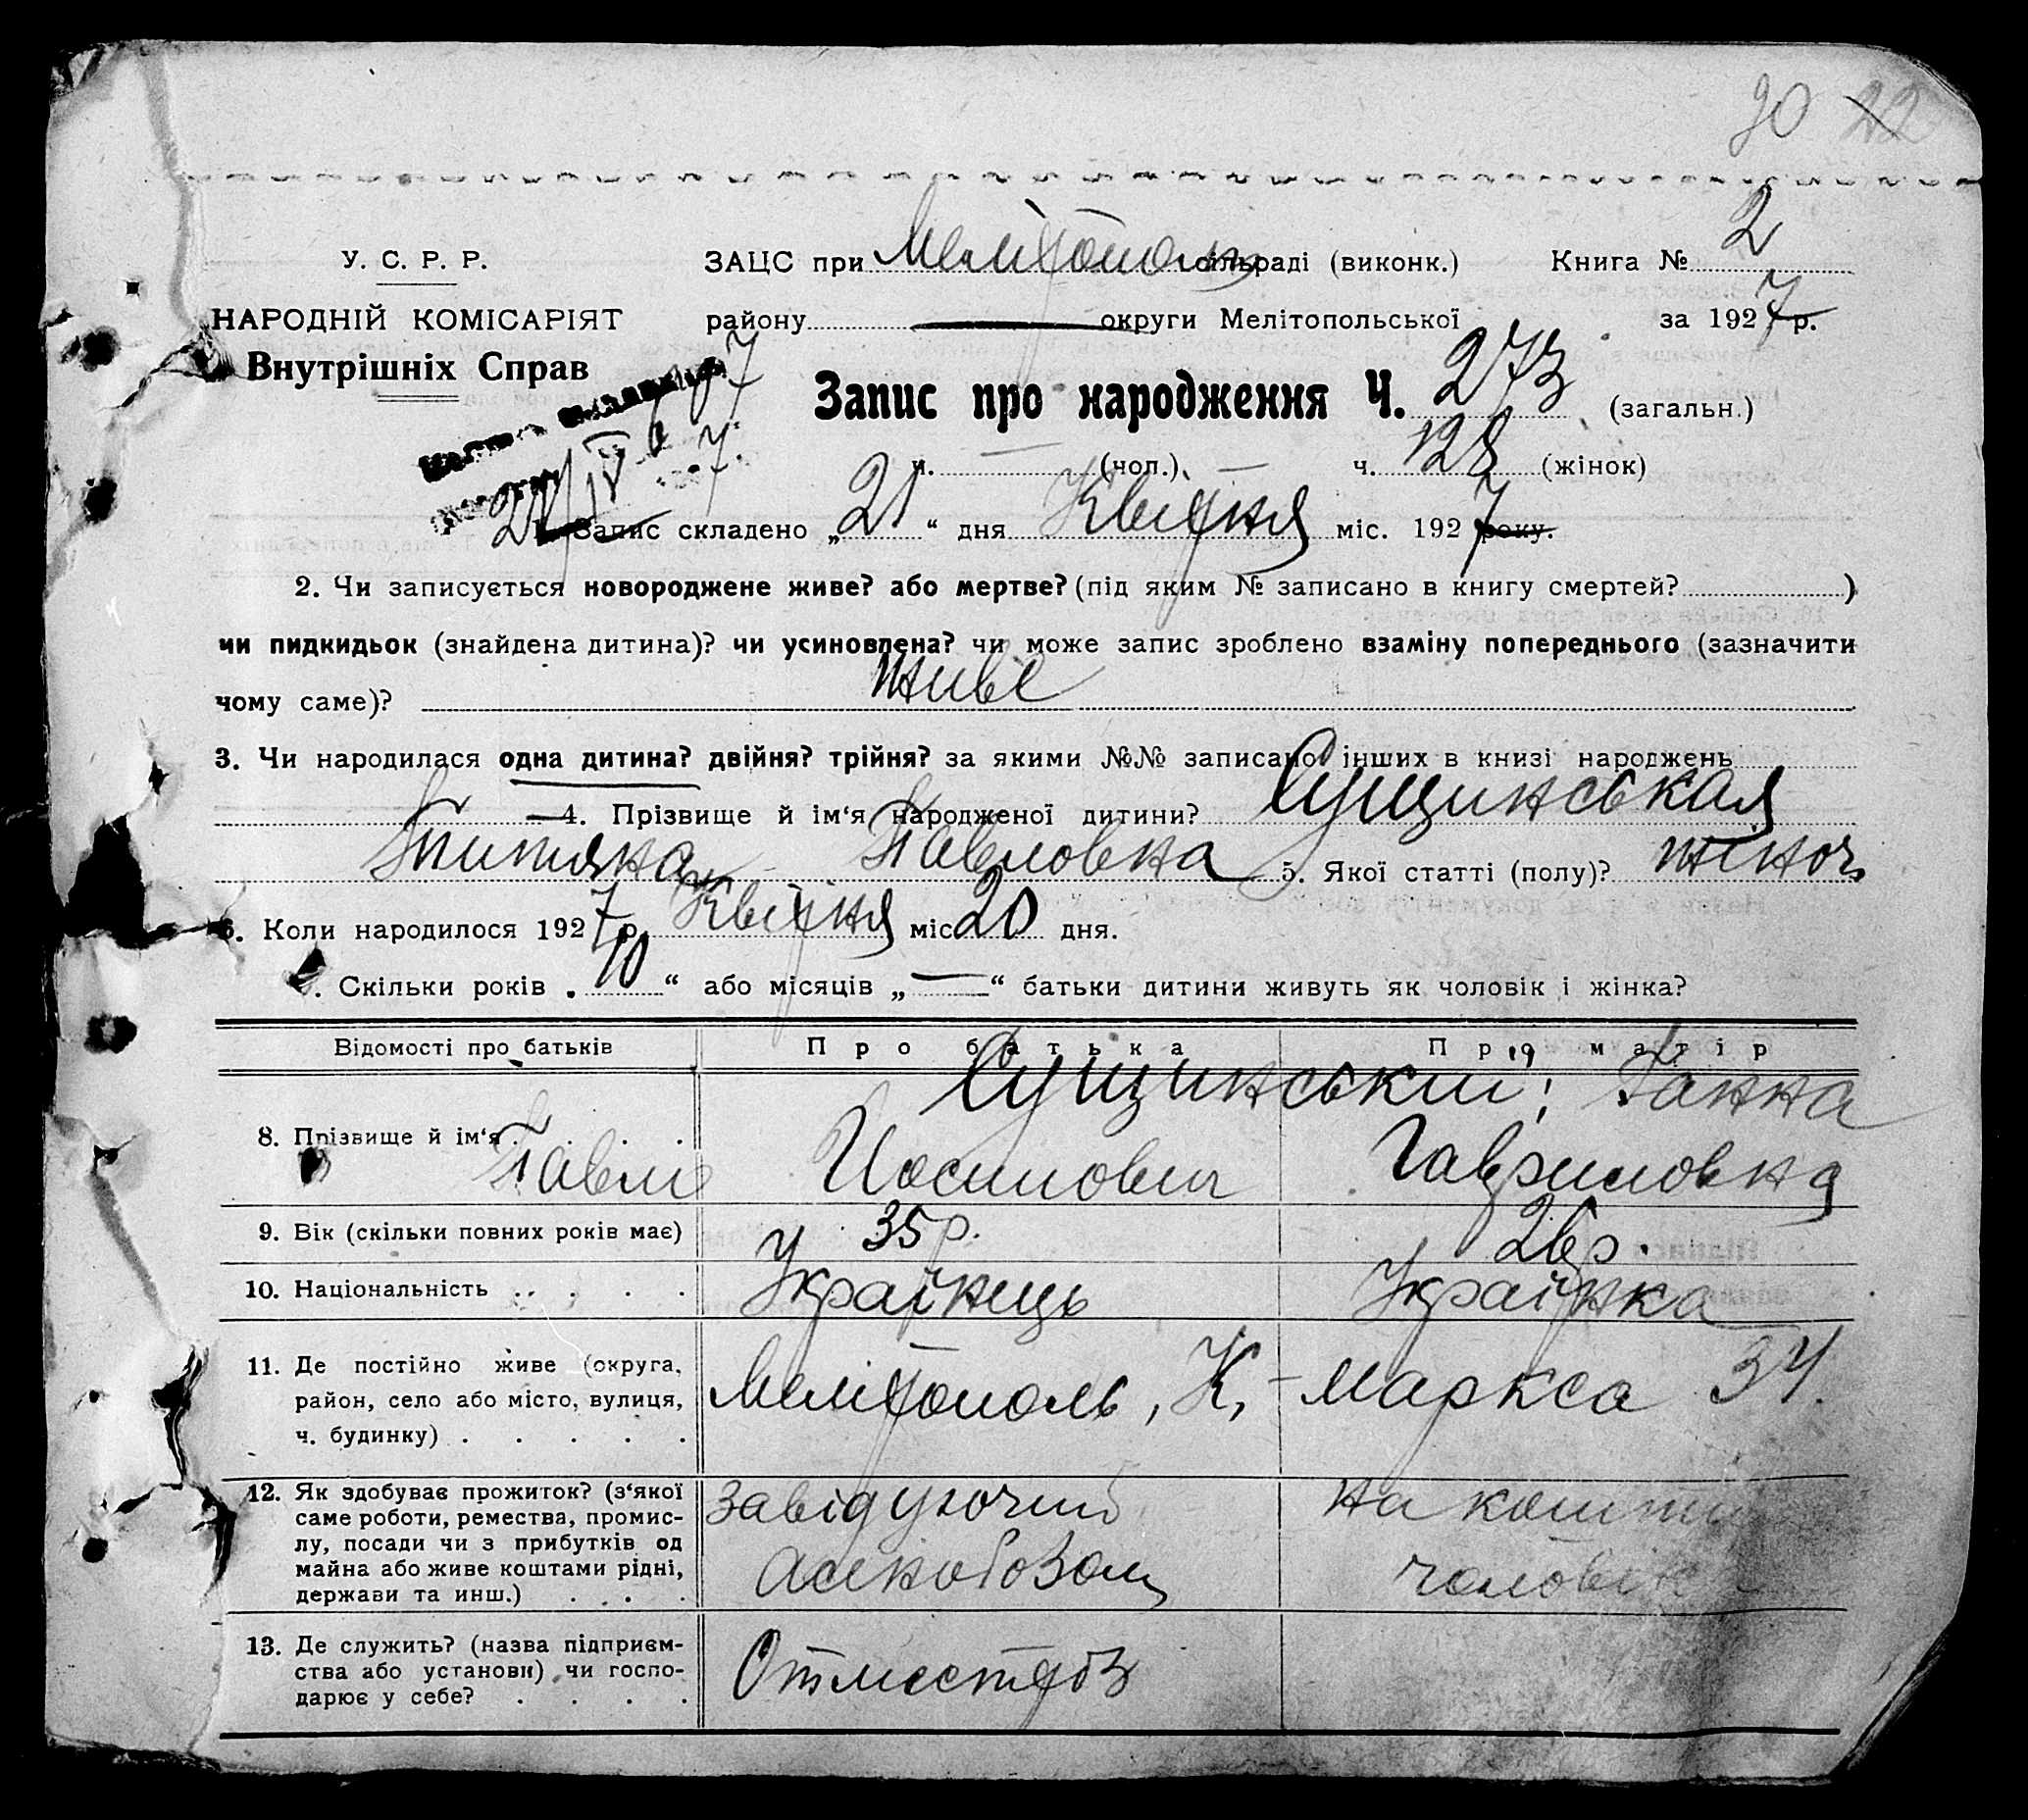 90 22
У. С. Р. Р. ЗАЦС при Мелітополь сільраді (виконк.) Книга № 2
НАРОДНІЙ КОМІСАРІЯТ району округи Мелітопольської за 1927 р.
Внутрішніх Справ
Запис про народження Ч. 273 (загальн.)
ч. — (чол.) ч. 128 (жінок)
1. Запис складено „21“ дня Квітня міс. 1927 року.
2. Чи записується новороджене живе? або мертве? (під яким № записано в книгу смертей? )
чи пидкидьок (знайдена дитина)? чи усиновлена? чи може запис зроблено взаміну попереднього (зазначити
чому саме)? живе
3. Чи народилася одна дитина? двійня? трійня? за якими №№ записано інших в книзі народжень
— 4. Прізвище й ім‘я народженої дитини? Сущинськая
Титяна Павловна 5. Якої статті (полу)? жіноч
6. Коли народилося 1927 р. Квітня міс 20 дня.
7. Скільки років „10“ або місяців „—“ батьки дитини живуть як чоловік і жінка?
Відомості про батьків Про батька Про матір
Сущинський; Ганна
8. Прізвище й ім‘я . . . . Павло Иосипович Гавриловна
9. Вік (скільки повних років має) 35 р. 26 р.
10. Національність . . . . . Українець Українка
11. Де постійно живе (округа,
район, село або місто, вулиця,
ч. будинку) . . . . . Мелітополь, К,-Маркса 34.
12. Як здобуває прожиток? (з‘якої
саме роботи, ремества, промис-
лу, посади чи з прибутків од
майна або живе коштами рідні,
держави та инш.) . . . . завідуючий на кошти
асенобозом чоловіка
13. Де служить? (назва підприєм-
ства або установи) чи госпо-
дарює у себе? . . . .